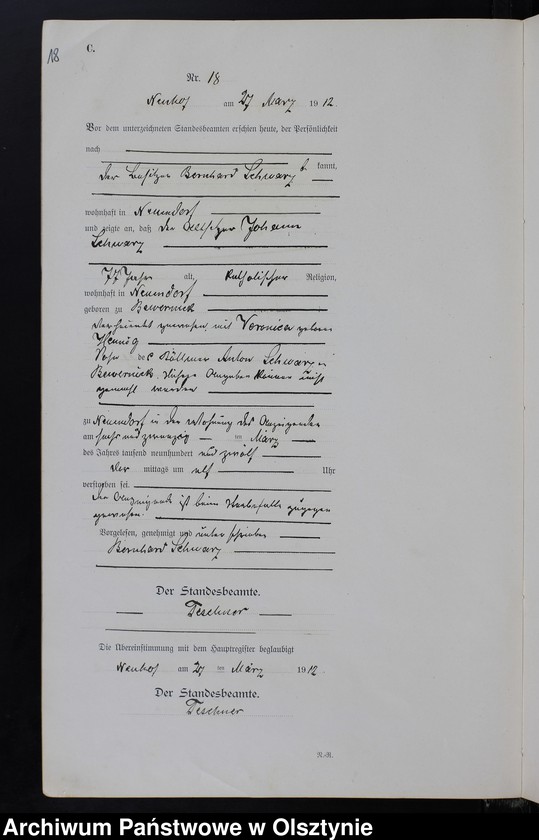 18
C.
Nr. 18
Neuhof am 27 März 1912.
Vor dem unterzeichneten Standesbeamten erschien heute, der Persönlichkeit
nach
kannt,
der Besitzer Bernhard Schwarz
wohnhaft in Neuendorf
und zeigte an, daß der Altsitzer Johann
Schwarz
77 Jahre alt, katholischer Religion,
wohnhaft in Neuendorf
geboren zu Bewernick
verheiratet gewesen mit Veronica geborene
Hennig
Sohn des Köllmer Anton Schwarz in
Bewernick, nähere Angaben können nicht
gemacht werden
zu Neuendorf in der Wohnung des Anzeigenden
am sechs und zwanzig ten März
des Jahres tausend neunhundert und zwölf
Vor mittags um elf Uhr
verstorben sei.
Der Anzeigende ist beim Sterbefalle zugegen
gewesen.
Vorgelesen, genehmigt und unterschrieben
Bernhard Schwarz
Der Standesbeamte.
Teschner
Die Übereinstimmung mit dem Hauptregister beglaubigt
Neuhof am 27 ten März 1912
Der Standesbeamte.
Teschner
N.-R.
Archiwum Państwowe w Olsztynie